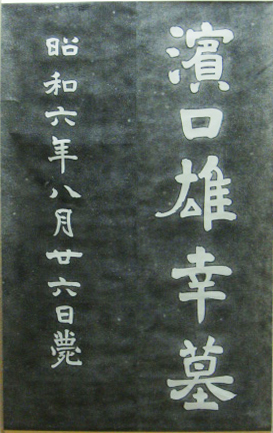 濱口雄幸墓
昭和六年八月廿六日薨